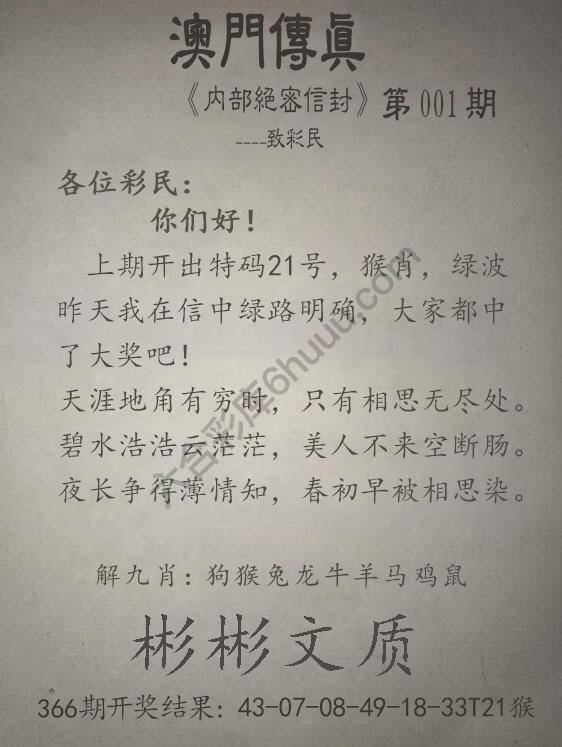 澳門傳眞
《内部絕密信封》第001期
----致彩民
各位彩民：
你们好！
上期开出特码21号，猴肖，绿波
昨天我在信中绿路明确，大家都中
了大奖吧！
天涯地角有穷时，只有相思无尽处。
碧水浩浩云茫茫，美人不来空断肠。
夜长争得薄情知，春初早被相思染。
解九肖：狗猴兔龙牛羊马鸡鼠
彬彬文质
366期开奖结果：43-07-08-49-18-33T21猴
六合彩库6huuu.com